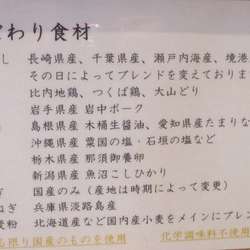 わり食材
し 長崎県産、千葉県産、瀬戸内海産、境港
その日によってブレンドを変えておりま
比内地鶏、つくば鶏、大山どり
岩手県産 岩中ポーク
島根県産 木桶生醤油、愛知県産たまり
沖縄県産 粟国の塩・石垣の塩など
栃木県産 那須御養卵
新潟県産 魚沼こしひかり
ぎ 国産のみ（産地は時期によって変更）
ねぎ 兵庫県淡路島産
麦粉 北海道産など国内産小麦をメインにブレン
る限り国産のものを使用 化学調味料不使用